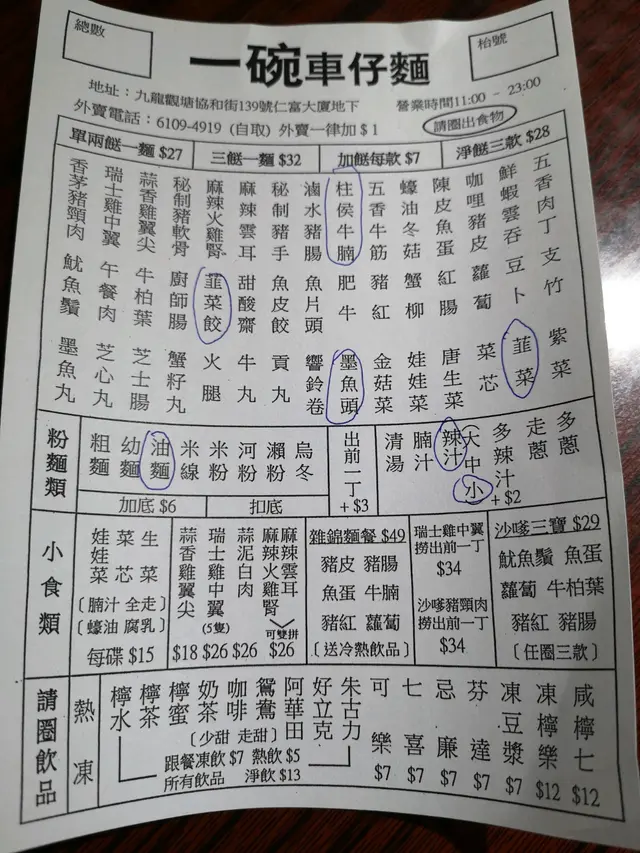 總數
枱號
一碗車仔麵
地址：九龍觀塘協和街139號仁富大廈地下
營業時間11:00 - 23:00
外賣電話：6109-4919 (自取) 外賣一律加＄1
請圈出食物
單兩餸一麵 $27
三餸一麵 $32
加餸每款 $7
淨餸三款 $28
五香肉丁
鮮蝦雲吞
咖哩豬皮
陳皮魚蛋
蠔油冬菇
五香牛筋
柱侯牛腩
滷水豬腸
秘制豬手
麻辣雲耳
麻辣火雞腎
秘制豬軟骨
蒜香雞翼尖
瑞士雞中翼
香茅豬頸肉
支竹
豆卜
蘿蔔
紅腸
蟹柳
豬紅
肥牛
魚片頭
魚皮餃
甜酸齋
韮菜餃
廚師腸
牛柏葉
午餐肉
魷魚鬚
紫菜
韮菜
菜芯
唐生菜
娃娃菜
金菇菜
墨魚頭
響鈴卷
貢丸
牛丸
火腿
蟹籽丸
芝士腸
芝心丸
墨魚丸
粉麵類
粗麵
幼麵
油麵
米線
米粉
河粉
瀨粉
烏冬
加底 $6
扣底
出前一丁
+ $3
清湯
腩汁
辣汁
(大中小)
多辣汁
+ $2
走蔥
多蔥
小食類
娃娃菜
菜芯
生菜
〔腩汁 全走〕
〔蠔油 腐乳〕
每碟 $15
蒜香雞翼尖
$18
瑞士雞中翼
(5隻)
$26
蒜泥白肉
$26
麻辣火雞腎
麻辣雲耳
可雙拼
$26
雜錦麵餐 $49
豬皮 豬腸
魚蛋 牛腩
豬紅 蘿蔔
〔送冷熱飲品〕
瑞士雞中翼
撈出前一丁
$34
沙嗲豬頸肉
撈出前一丁
$34
沙嗲三寶 $29
魷魚鬚 魚蛋
蘿蔔 牛柏葉
豬紅 豬腸
〔任圈三款〕
請圈飲品
熱
凍
檸水
檸茶
檸蜜
奶茶
咖啡
鴛鴦
阿華田
好立克
朱古力
〔少甜 走甜〕
跟餐凍飲 $7 熱飲 $5
所有飲品 淨飲 $13
可樂
$7
七喜
$7
忌廉
$7
芬達
$7
凍豆漿
$7
凍檸樂
$12
咸檸七
$12